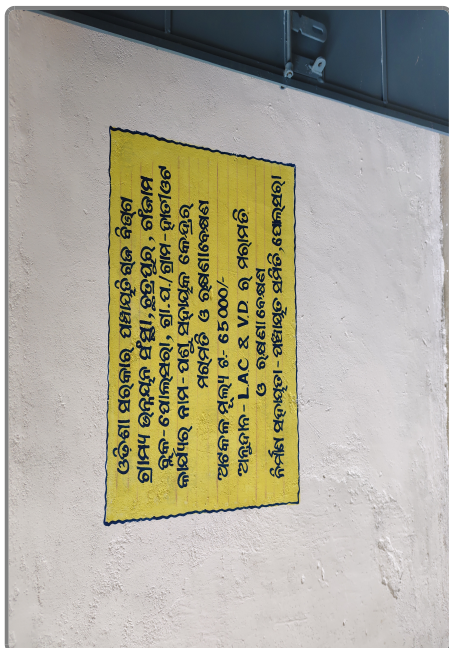 ଓଡ଼ିଶା ସରକାର, ପଞ୍ଚାୟତିରାଜ ବିଭାଗ
ଗ୍ରାମ୍ୟ ଉନ୍ନୟନ ସଂସ୍ଥା, ଛତ୍ରପୁର, ଗଞ୍ଜାମ
ବ୍ଲକ - ପୋଲସରା, ଗ୍ରା.ପ./ଗ୍ରାମ -
କାର୍ଯ୍ୟର ନାମ - ପଶୁ ସହାୟକ କେନ୍ଦ୍ରର
ମରାମତି ଓ ରକ୍ଷଣାବେକ୍ଷଣ
ଅଟକଳ ମୂଲ୍ୟ ଟ.- 65000/-
ଅନୁଦାନ - LAC & V.D ର ମରାମତି
ଓ ରକ୍ଷଣାବେକ୍ଷଣ
ନିର୍ମାଣ ସହାୟତା - ପଞ୍ଚାୟତ ସମିତି, ପୋଲସରା